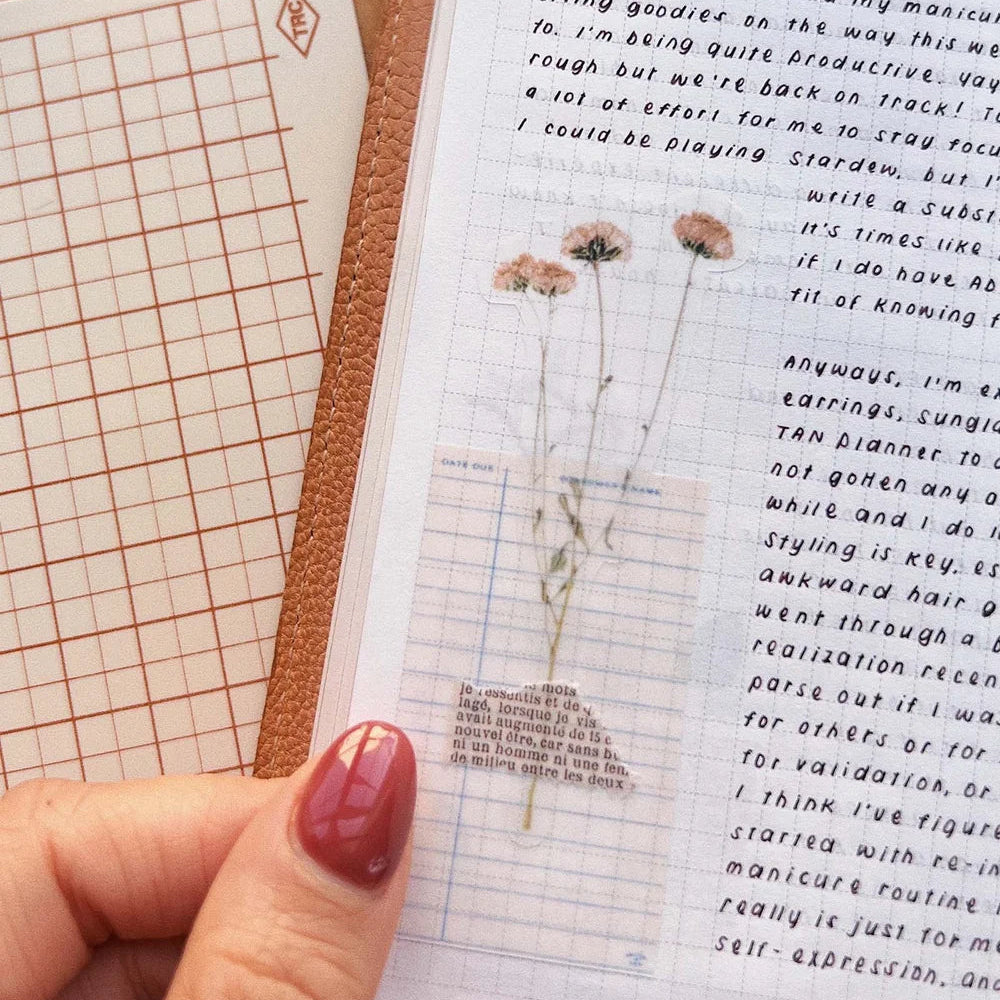 TRC
goodies on the way this we
to. I'm being quite productive. yay
rough but we're back on track!
a lot of effort for me to stay focu
I could be playing Stardew, but I'
write a subst
It's times like
if I do have AD
fit of knowing f
Anyways, I'm ex
earrings, sungla
TAN planner to
not gotten any
while and I do
styling is key. es
awkward hair
went through a
realization recen
parse out if I wa
for others or for
for validation, or
I think I've figure
started with re-in
manicure routine
really is just for me
self-expression, and
DATE DUE
mots
je ressentis et de
lagé, lorsque je vis
avait augmenté de 15
nouvel être, car sans
ni un homme ni une fem
de milieu entre les deux